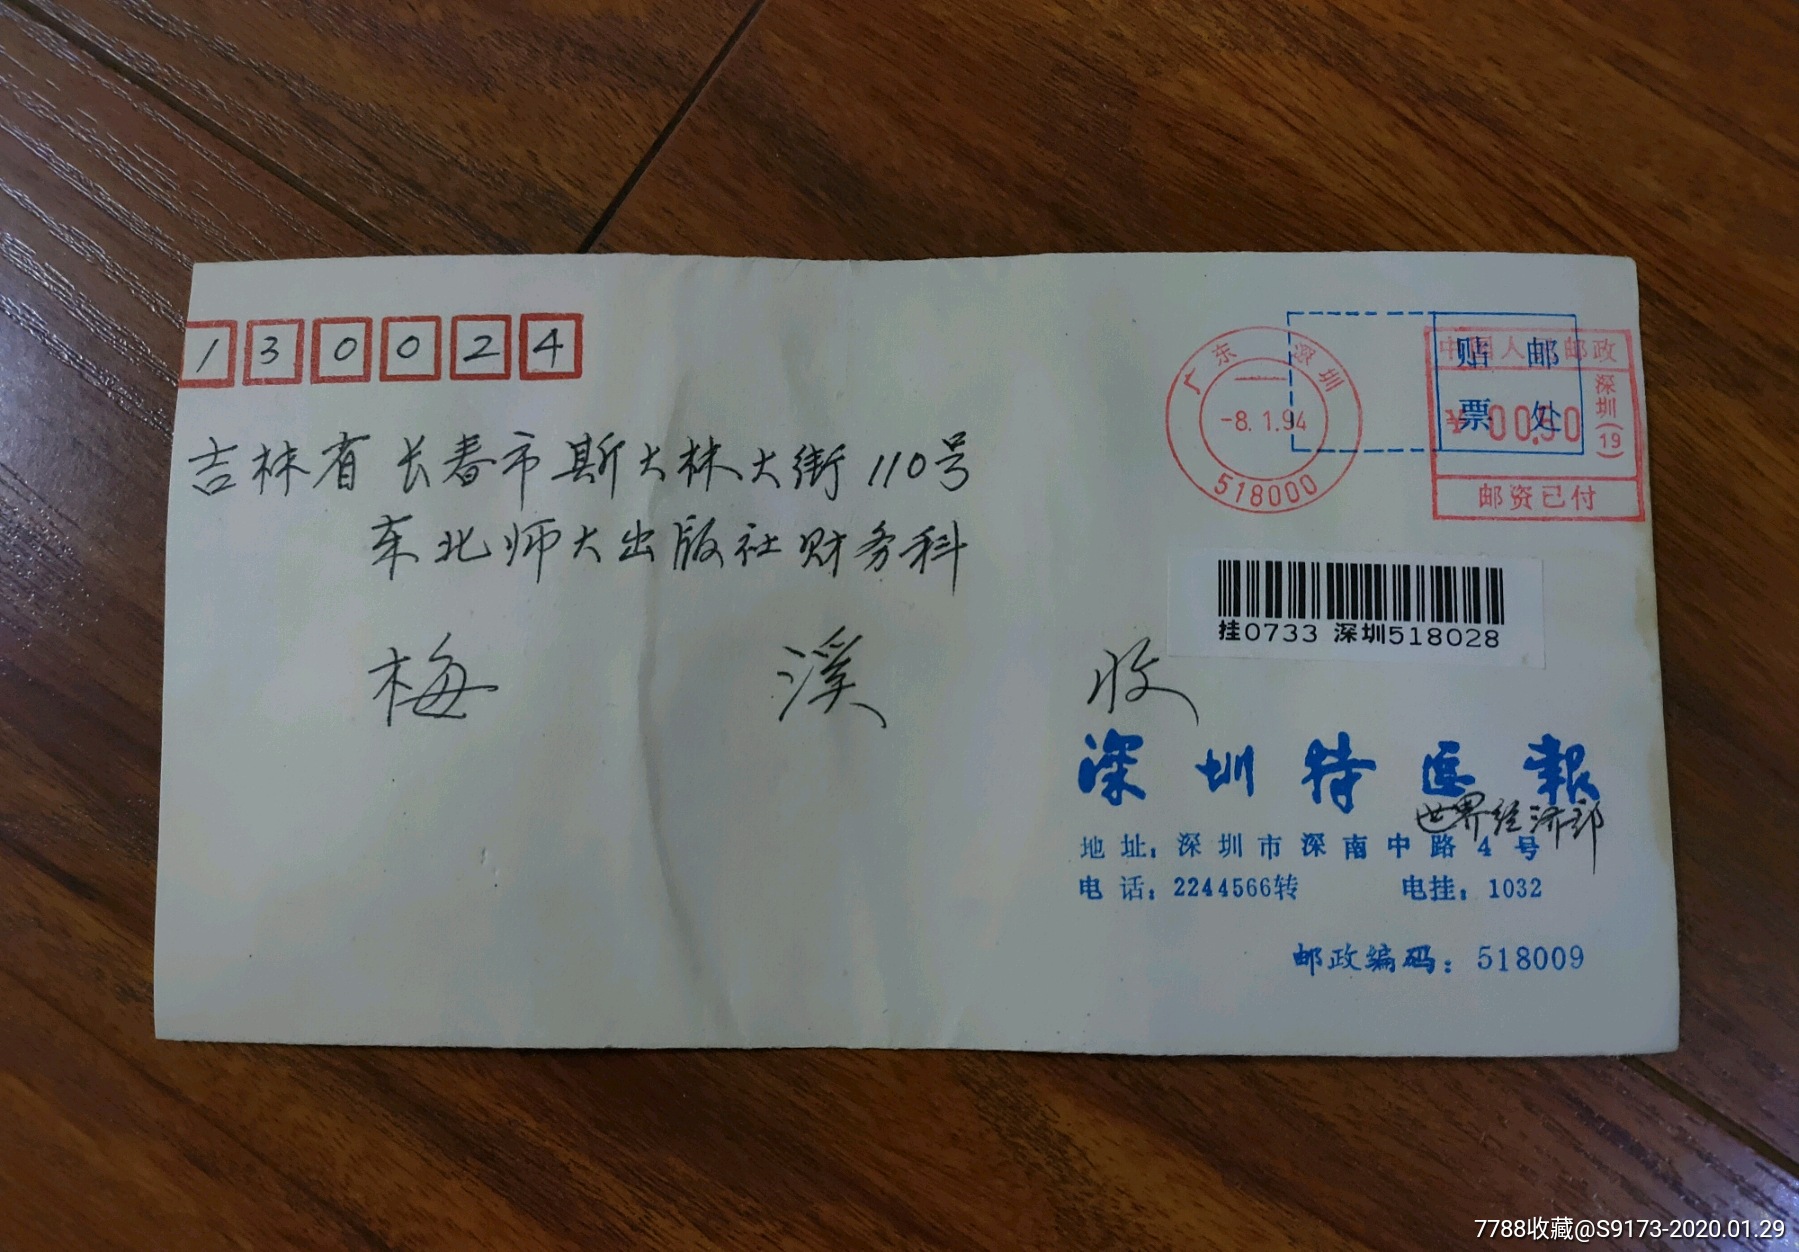 130024
广东 深圳
-8.1.94
518000
贴 邮
票 处
中国人民邮政
深圳(19)
¥0050
邮资已付
吉林省长春市斯大林大街110号
东北师大出版社财务科
挂0733 深圳518028
梅 溪 收
深圳特区報
世界经济部
地址：深圳市深南中路4号
电话：2244566转 电挂：1032
邮政编码：518009
7788收藏@S9173-2020.01.29